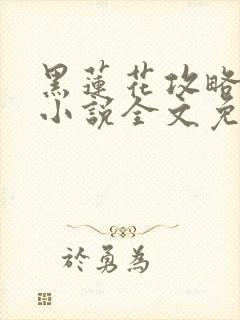 黑蓮花攻略
小說全文免
於勇為